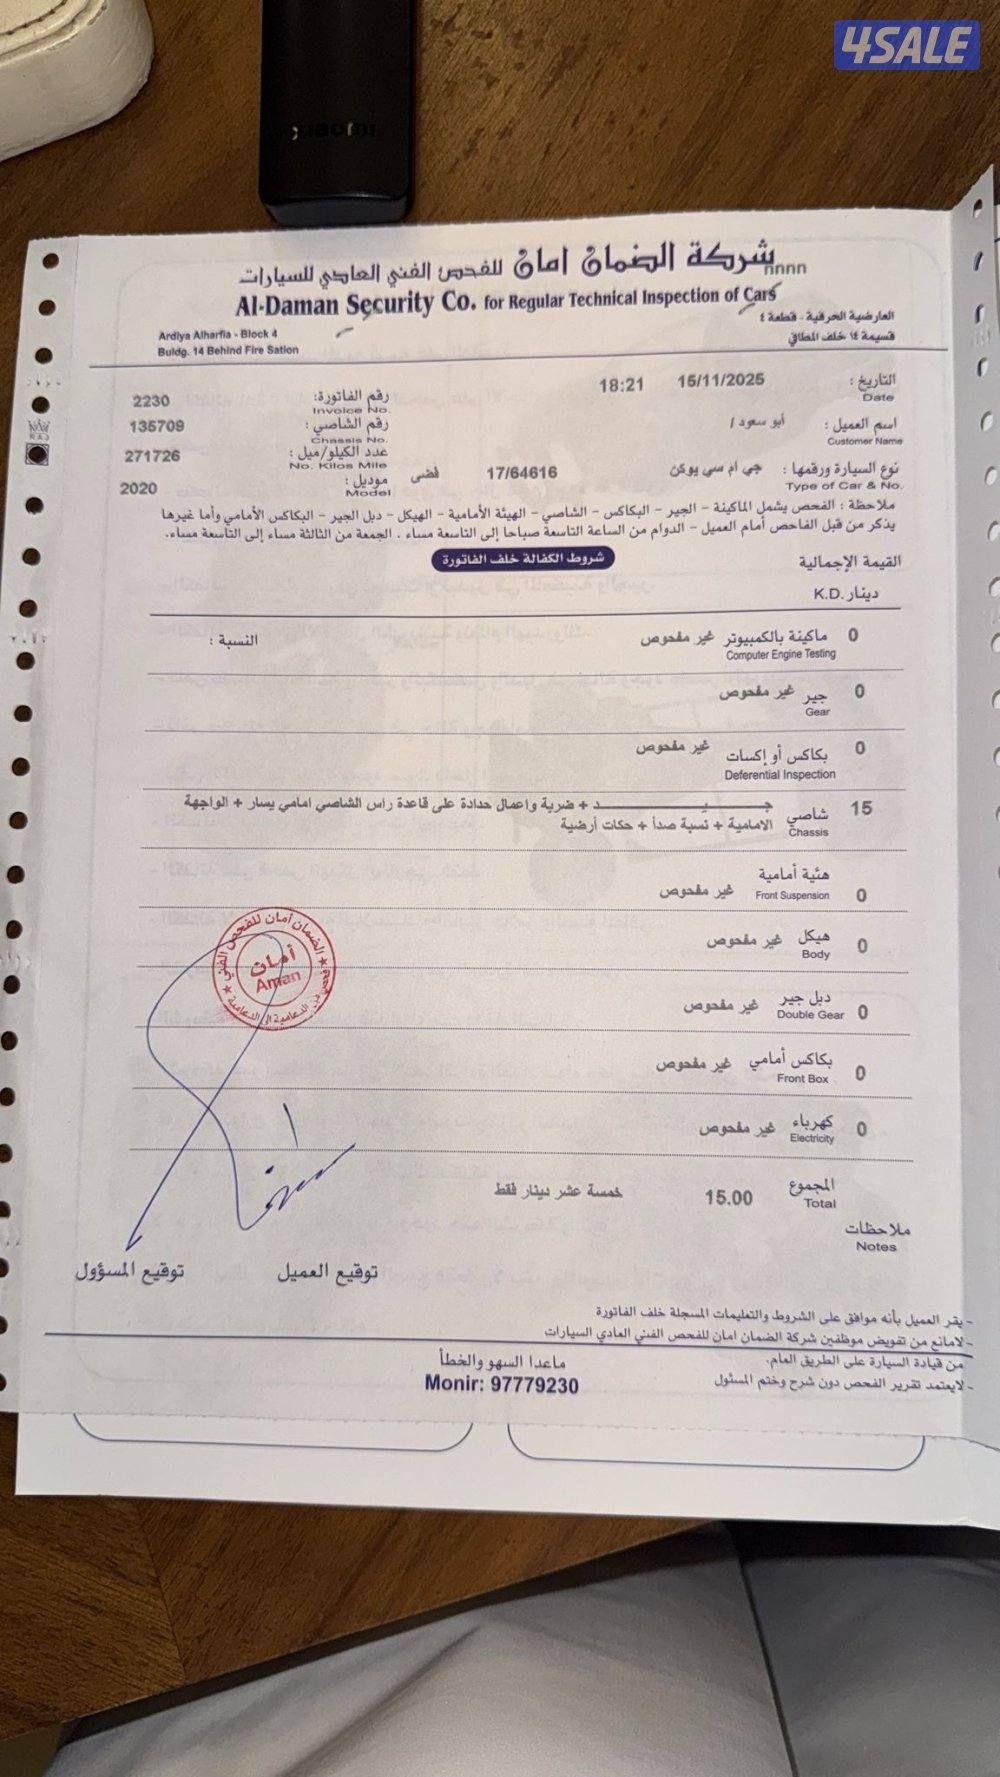 4SALE
xiaomi
شركة الضمان امان للفحص الفني العادي للسيارات
nnnn
Al-Daman Security Co. for Regular Technical Inspection of Cars
العارضية الحرفية - قطعة ٤
قسيمة ١٤ خلف المطافي
Ardiya Alharfia - Block 4
Buldg. 14 Behind Fire Sation
التاريخ : 15/11/2025 18:21
Date
رقم الفاتورة: 2230
Invoice No.
اسم العميل : أبو سعود /
Customer Name
رقم الشاصي : 135709
Chassis No.
نوع السيارة ورقمها : جي ام سي يوكن 17/64616 فضي
Type of Car & No.
عدد الكيلو/ميل : 271726
No. Kilos Mile
موديل : 2020
Model
ملاحظة : الفحص يشمل الماكينة - الجير - البكاكس - الشاصي - الهيئة الأمامية - الهيكل - دبل الجير - البكاكس الأمامي وأما غيرها
يذكر من قبل الفاحص أمام العميل - الدوام من الساعة التاسعة صباحا إلى التاسعة مساء . الجمعة من الثالثة مساء إلى التاسعة مساء.
شروط الكفالة خلف الفاتورة
القيمة الإجمالية
دينار K.D.
0 ماكينة بالكمبيوتر غير مفحوص النسبة :
Computer Engine Testing
0 جير غير مفحوص
Gear
0 بكاكس أو إكسات غير مفحوص
Deferential Inspection
15 شاصي جـــيـــد + ضربة واعمال حدادة على قاعدة راس الشاصي امامي يسار + الواجهة
الامامية + نسبة صدأ + حكات أرضية
Chassis
0 هئية أمامية غير مفحوص
Front Suspension
0 هيكل غير مفحوص
Body
0 دبل جير غير مفحوص
Double Gear
0 بكاكس أمامي غير مفحوص
Front Box
0 كهرباء غير مفحوص
Electricity
الضمان أمان للفحص الفني
أمان
Aman
المجموع 15.00 خمسة عشر دينار فقط
Total
ملاحظات
Notes
توقيع العميل
توقيع المسؤول
- يقر العميل بأنه موافق على الشروط والتعليمات المسجلة خلف الفاتورة
- لامانع من تفويض موظفين شركة الضمان امان للفحص الفني العادي السيارات
من قيادة السيارة على الطريق العام.
- لايعتمد تقرير الفحص دون شرح وختم المسئول
ماعدا السهو والخطأ
Monir: 97779230